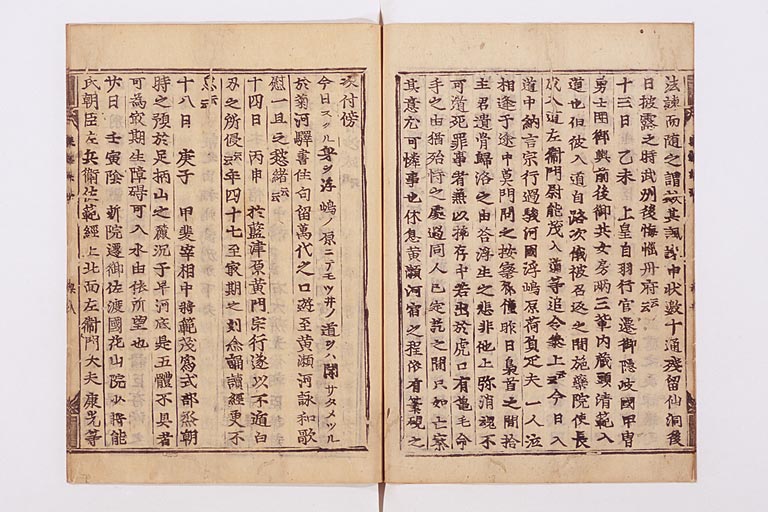 法諫而随之謂哉其諷諫申状數十通殘留仙洞後
日披露之時武州後悔惱丹府云云
十三日 乙未 上皇自羽行官遷御隠岐國甲冑
勇士囲御輿前後御共女房兩三輩内蔵頭清範入
道也但彼入道自路次俄被召返之間施藥院使長
成入道左衛門尉能茂入道等追令參上云云今日入
道中納言宗行過駿河國浮嶋原荷負疋夫一人泣
相逢于途中黄門問之按察卿僮昨日梟首之間拾
主君遺骨歸洛之由答浮生之悲非他上弥消魂不
可遁死罪事者兼以挿存中若出於虎口有龜毛命
乎之由猶殆恃之處過同人已定訖之間只如亡察
其意尤可憐事也休息黄瀬河宿之程依有筆硯之
次付傍
今日スクル身ヲ浮嶋ノ原ニテモツ井ノ道ヲハ聞サタメツル
於菊河驛書佳句留萬代之口遊至黄瀬河詠和歌
慰一旦之愁緒云云
十四日 丙申 於藍津原黄門宗行遂以不遁白
刄之所侵云云年四十七至最期之刻念誦讀經更不
怠云云
十八日 庚子 甲斐宰相中將範茂爲式部丞朝
時之預於足柄山之麓沉于早河底是五體不具者
可爲最期生障碍可入水由依所望也
廿日 壬寅陰 新院遷御佐渡國花山院少將能
氏朝臣左兵衛佐範經上北面左衛門大夫康光等